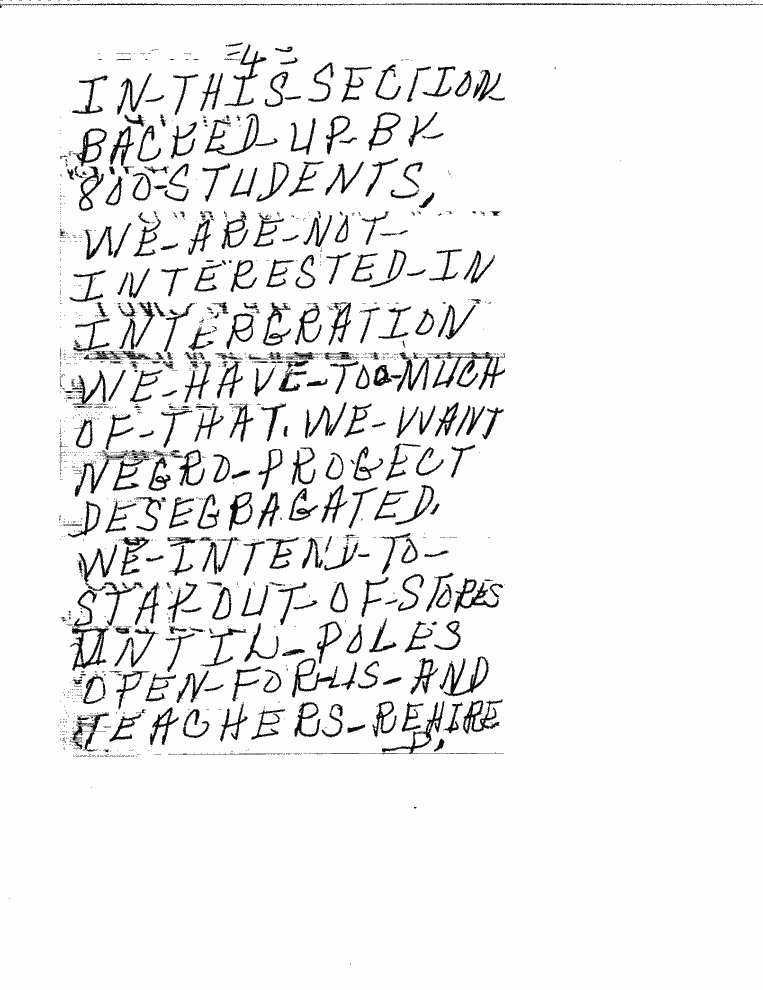 =4=
IN-THIS-SECTION
BACKED-UP-BY
800-STUDENTS,
WE-ARE-NOT-
INTERESTED-IN
INTERGRATION
WE-HAVE-TOO-MUCH
OF-THAT. WE-WANT
NEGRO-PROGECT
DESEGRAGATED.
WE-INTEND-TO-
STAY-OUT-OF-STORES
UNTIL-POLES
OPEN-FOR-US-AND
TEACHERS-REHIRE
D.